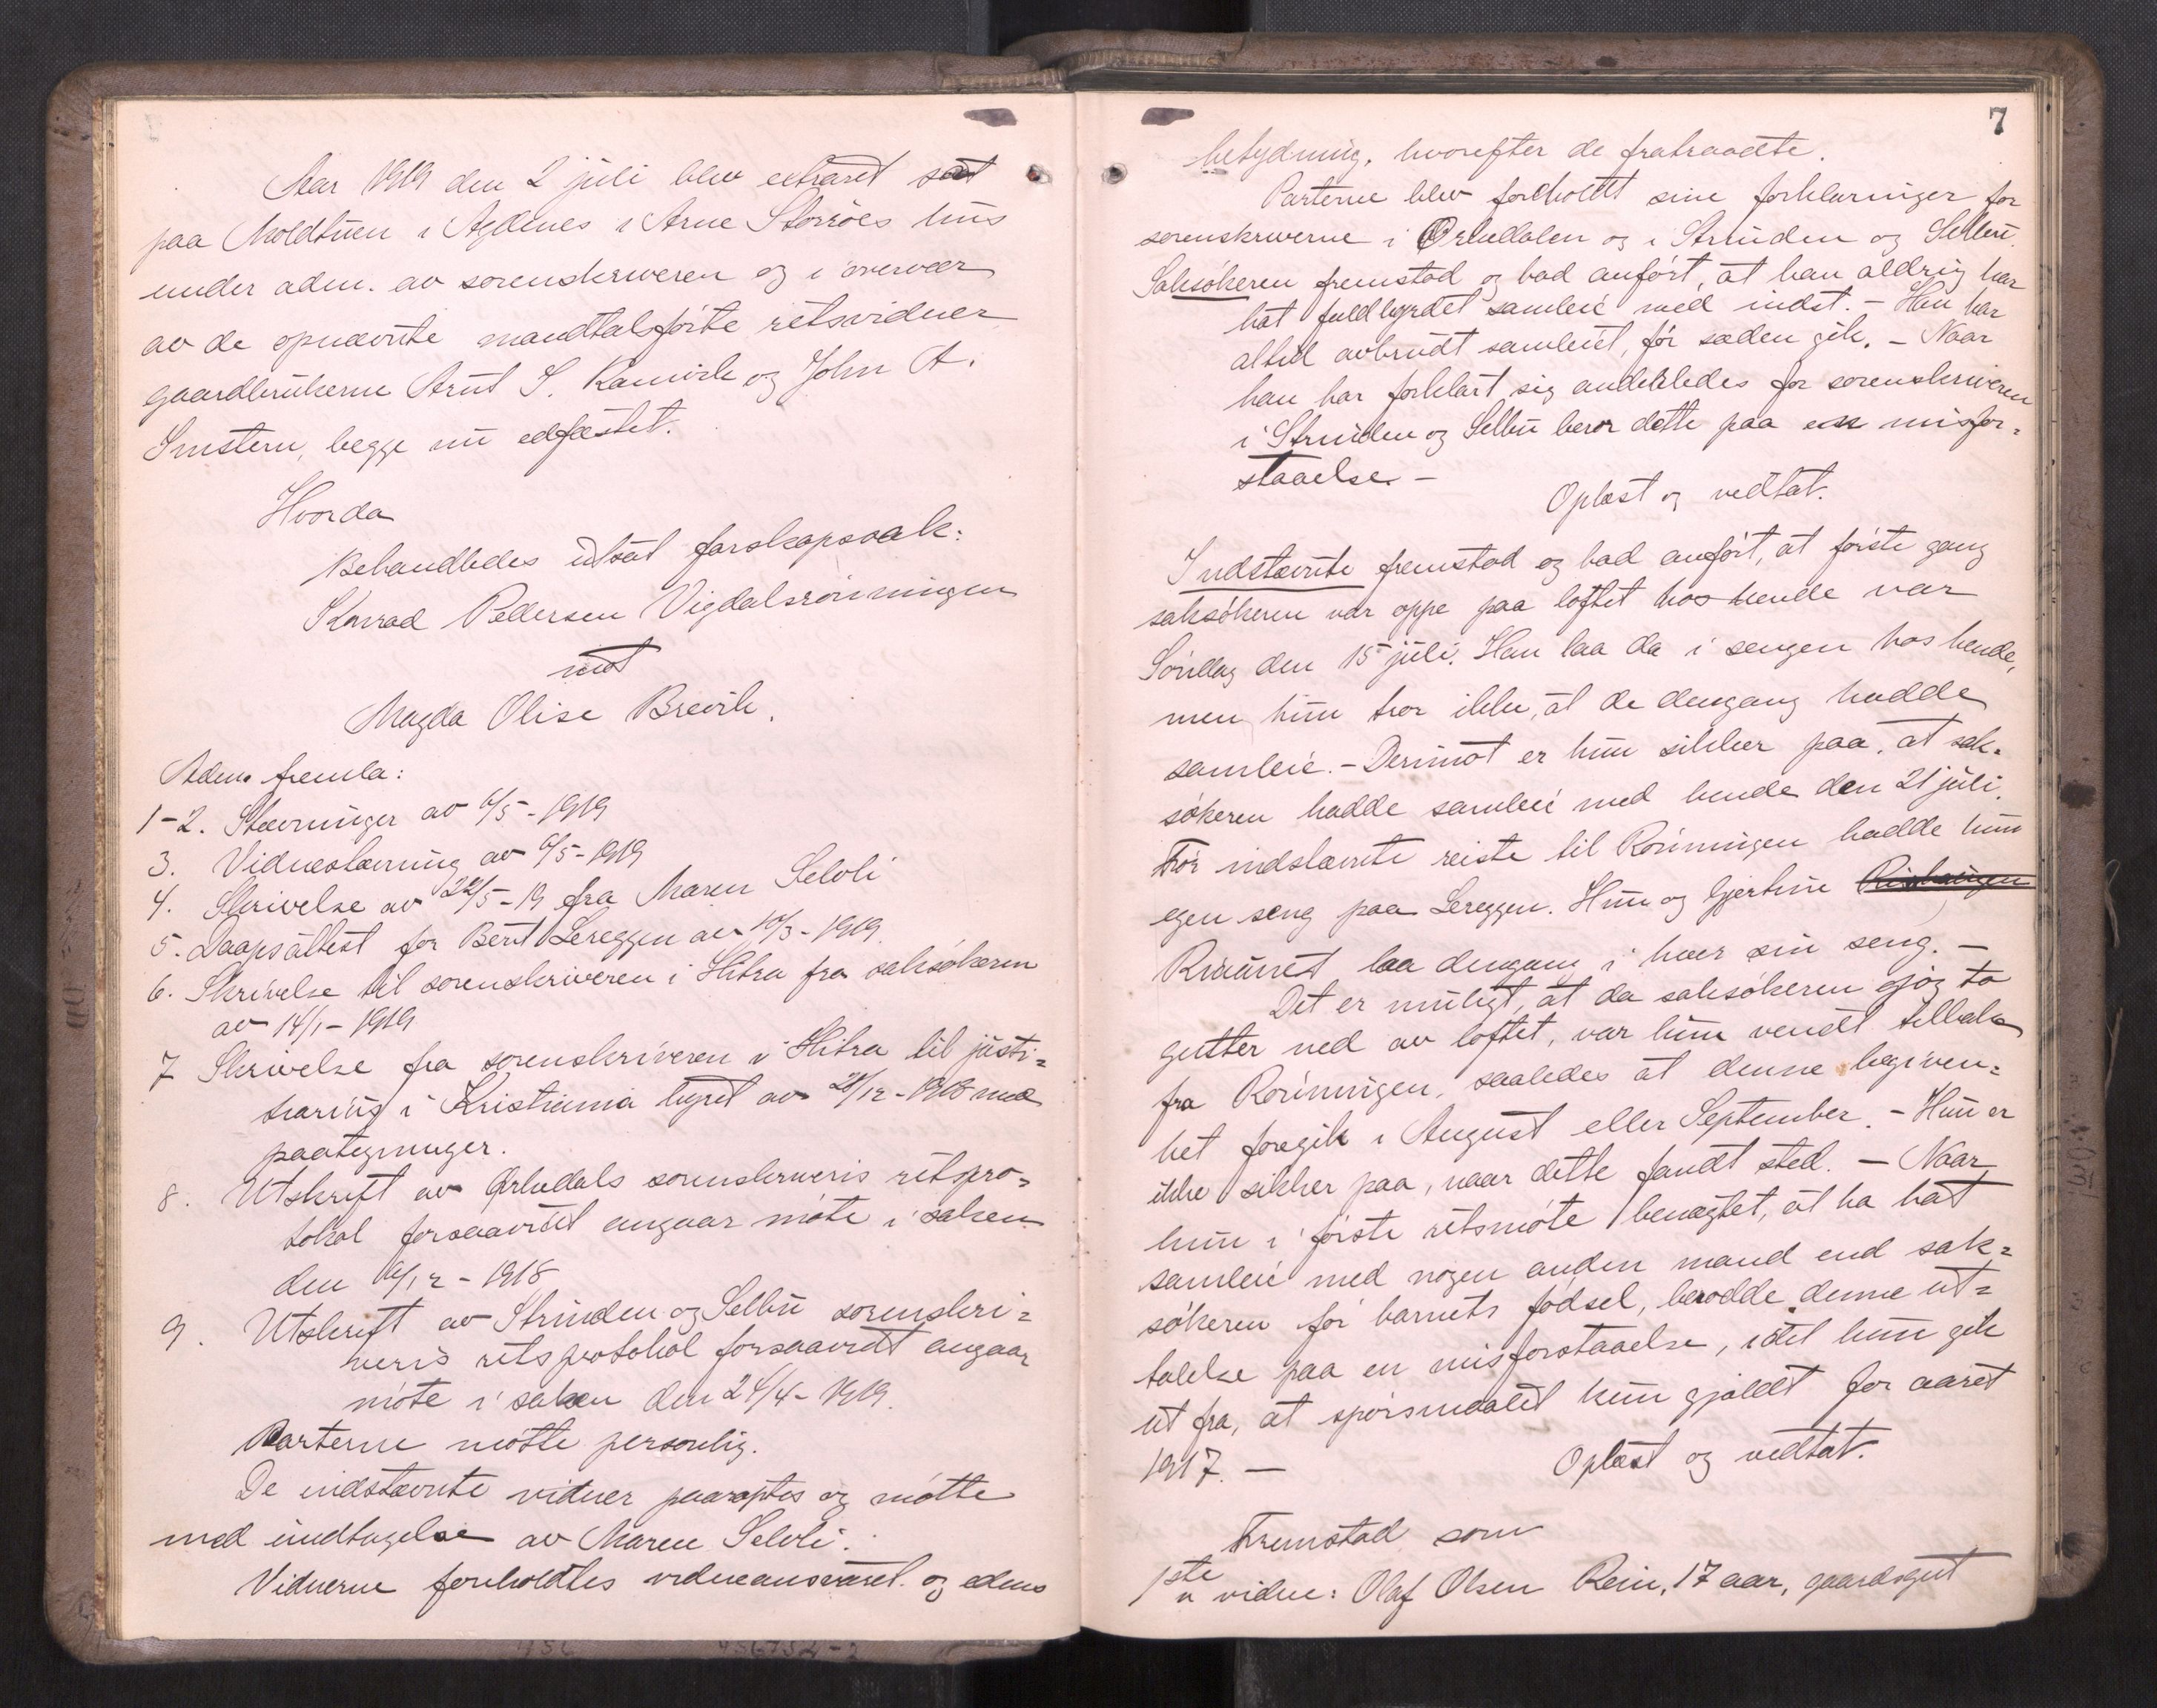 Aar 1919 den 2 juli blev extraret sat
paa Moldtuen i Agdenes i Arne Storröes hus
under adm. av sorenskriveren og i overvær
av de opnævnte mandtalsførte retsvidner
gaardbrukerne Arnt S. Kamvik og John A.
Smstern, begge nu edfæstet.
Hvorda
Behandledes utsat farskapssak:
Konrad Pedersen Vigdalsrönningen
mot
Magda Olise Brevik.
Adm. fremla:
1-2. Stævninger av 6/5-1919
3. Vidnestævning av 6/5-1919
4. Skrivelse av 22/5-19 fra Maren Selvli
5. Daapsattest for Berit Lereggen av 10/3-1919.
6. Skrivelse til sorenskriveren i Hitra fra saksökeren
av 14/1-1919
7 Skrivelse fra sorenskriveren i Hitra til justi=
tiarius i Kristiania byret av 28/12-1918 med
paategninger.
8. Utskrift av Orkedals sorenskriveris retspro=
tokol forsaavidt angaar möte i saken
den 6/12-1918
9. Utskrift av Strinden og Selbu sorenskri=
veris retsprotokol forsaavidt angaar
möte i saken den 24/4-1919.
Parterne mötte personlig.
De indstævnte vidner paaroptes og mötte
med undtagelse av Maren Selvli.
Vidnerne foreholdtes vidneansvaret og edens
7
betydning, hvorefter de fratraadte.
Parterne blev foreholdt sine forklaringer for
sorenskriverne i Orkedalen og i Strinden og Selbu.
Saksökeren fremstod og bad anført, at han aldrig har
hat fuldbyrdet samleie med indst. - Han har
altid avbrudt samleiet, før sæden gik. - Naar
han har forklart sig anderledes for sorenskriveren
i Strinden og Selbu beror dette paa en misfor=
staaelse. -
Oplæst og vedtat.
Indstævnte fremstod og bad anført, at förste gang
saksökeren var oppe paa loftet hos hende var
Söndag den 15 juli. Han laa da i sengen hos hende,
men hun tror ikke, at de dengang hadde
samleie. - Derimot er hun sikker paa, at sak=
sökeren hadde samleie med hende den 21 juli.
Før indstævnte reiste til Rönningen hadde hun
egen seng paa Lereggen. Hun og Gjertine
laa dengang i hver sin seng. -
Det er muligt, at da saksökeren jog to
gutter ned av loftet, var hun vendt tilbake
fra Rönningen, saaledes at denne begiven=
het foregik i August eller September. - Hun er
ikke sikker paa, naar dette fandt sted. - Naar
hun i förste retsmöte benægtet, at ha hat
samleie med nogen anden mand end sak=
sökeren før barnets födsel, berodde denne ut=
talelse paa en misforstaaelse, idet hun gik
ut fra, at spörsmaalet kun gjaldt for aaret
1917. -
Oplæst og vedtat.
Fremstod som
1ste vidne: Olaf Olsen Rein, 17 aar, gaardsgut